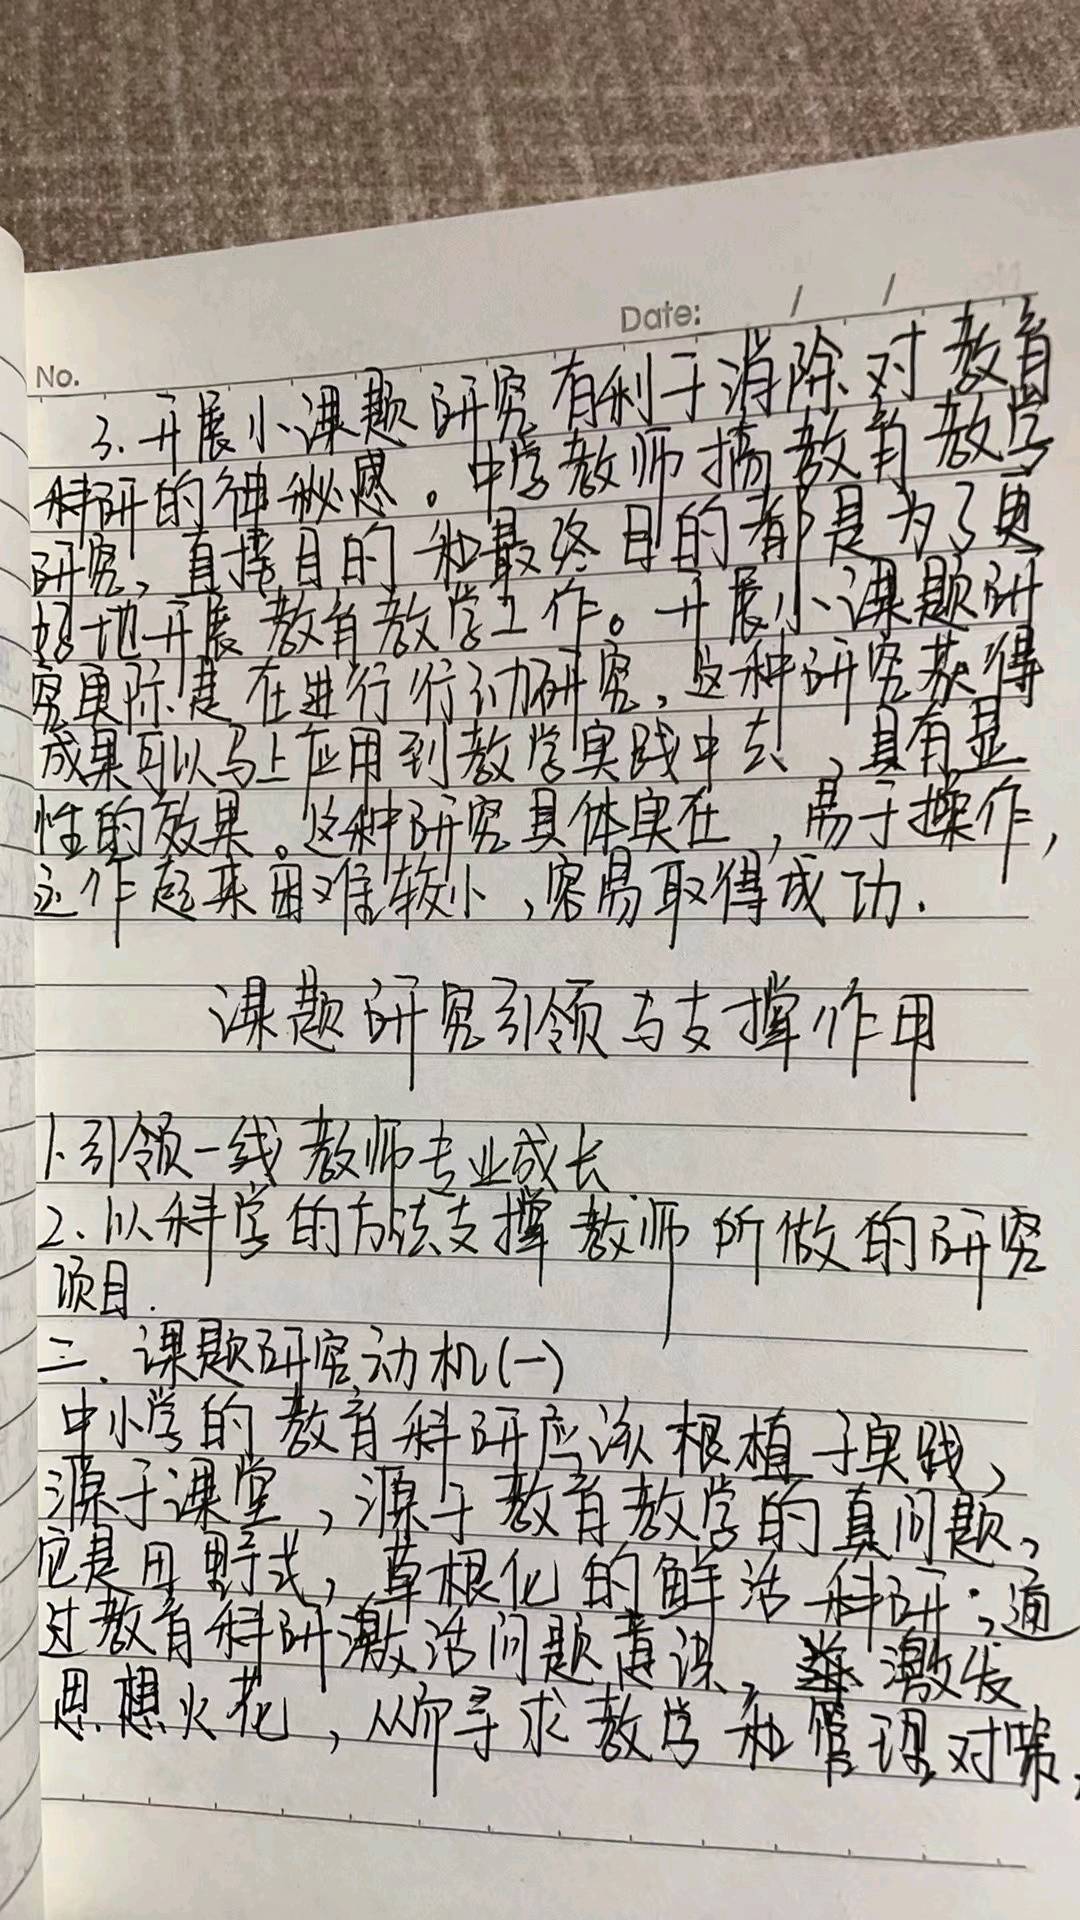 Date: / /
No.
3.开展小课题研究有利于消除对教育
科研的神秘感。中学教师搞教育教学
研究,直接目的和最终目的都是为了更
好地开展教育教学工作。开展小课题研
究更际是在进行行动研究,这种研究获得
成果可以马上应用到教学实践中去,具有显
性的效果。这种研究具体实在,易于操作,
运作起来困难较小,容易取得成功.
课题研究引领与支撑作用
1.引领一线教师专业成长
2.以科学的方法支撑教师所做的研究
项目.
三.课题研究动机(一)
中小学的教育科研应该根植于实践,
源于课堂,源于教育教学的真问题,
它是田野式,草根化的鲜活科研;通
过教育科研激活问题意识,激发
思想火花,从而寻求教学和管理对策,